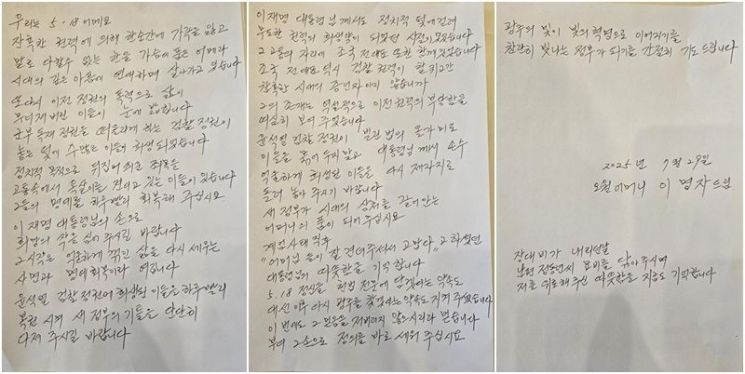 우리는 5.18 어메요
잔혹한 권력에 의해 한순간에 가족을 잃고
말로 다할수 없는 한을 가슴에 품은 어메라
시대의 깊은 아픔에 연대하며 살아가고 있습니다
또다시 이전 정권의 폭력으로 삶이
무너져버린 이들이 눈에 밟힙니다
군부독재 정권을 떠올리게 하는 검찰 정권이
놓은 덫에 수많은 이들이 희생되었습니다
정치적 목적으로 뒤집어 씌운 죄목을
고통속에서 목숨처럼 견디고 있는 이들이 있습니다
그들의 명예를 하루빨리 회복해 주십시요
이재명 대통령님의 손으로
희망의 싹을 심어주시길 바랍니다
그 시작은 억울하게 꺾인 삶을 다시 세우는
사면과 명예회복이라 여깁니다
윤석열 검찰정권에 희생된 이들을 하루빨리
복권 시켜 새 정부의 기틀을 단단히
다져 주시길 바랍니다
이재명 대통령님께서도 정치적 덫에 걸려
무도한 권력의 희생양이 되었던 시간이 있었습니다
그 고통의 자리에 조국 전대표 또한 함께 있었습니다
조국 전대표 역시 검찰 권력이 할퀴고간
참혹한 시대의 증인자 아니 않습니까
그의 존재는 역설적으로 이전 권력의 부당함을
여실히 보여 주었습니다
윤석열 검찰 정권이 빌런 법의 올가미로
이들을 묶어 두지 말고 대통령님께서 손수
억울하게 희생된 이들을 다시 제자리로
돌려 놓아 주시기 바랍니다
새 정부가 시대의 상처를 끌어안는
어머니의 품이 되어주십시요
계엄사태 직후
"어머님들이 잘 견뎌주셔서 고맙다" 고 하셨던
대통령님의 따뜻함을 기억합니다
5.18 정신을 헌법 전문에 담겠다는 약속도
대선 이후 다시 광주를 찾겠다는 약속도 지켜주셨습니다
이번에도 그 믿음을 저버리지 않으시리라 믿습니다
부디 그 손으로 정의를 바로 세워 주십시요
광주의 빛이 빛의 혁명으로 이어지기를
찬란히 빛나는 정부가 되기를 간절히 기도드립니다
2025년 7월 29일
오월어머니 이명자드림
장대비가 내리던날
남편 정동년씨 묘비를 닦아주시며
저를 위로해 주신 따뜻함을 지금도 기억합니다